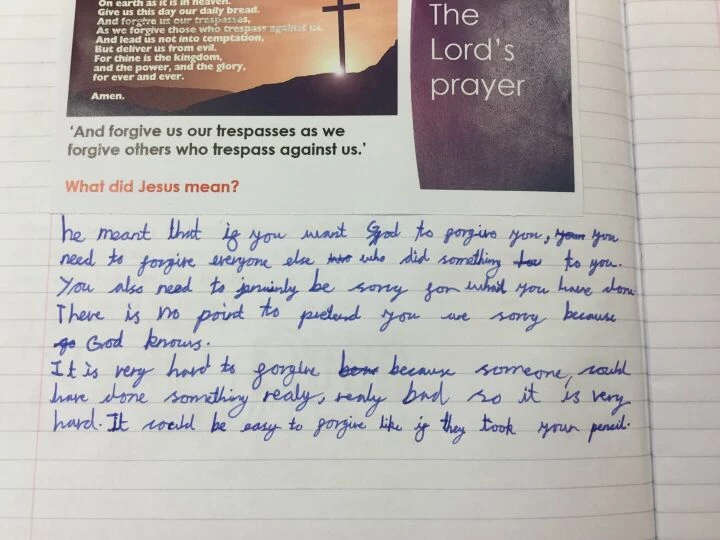 On earth as it is in heaven.
Give us this day our daily bread.
And forgive us our trespasses,
As we forgive those who trespass against us.
And lead us not into temptation,
But deliver us from evil.
For thine is the kingdom,
and the power, and the glory,
for ever and ever.
Amen.
The
Lord's
prayer
'And forgive us our trespasses as we
forgive others who trespass against us.'
What did Jesus mean?
he meant that if you want God to forgive you, you
need to forgive everyone else who did something to you.
You also need to jenuinly be sorry for what you have done
There is no point to pretend you are sorry because
God knows.
It is very hard to forgive because someone, could
have done something realy, realy bad so it is very
hard. It could be easy to forgive like if they took your pencil.